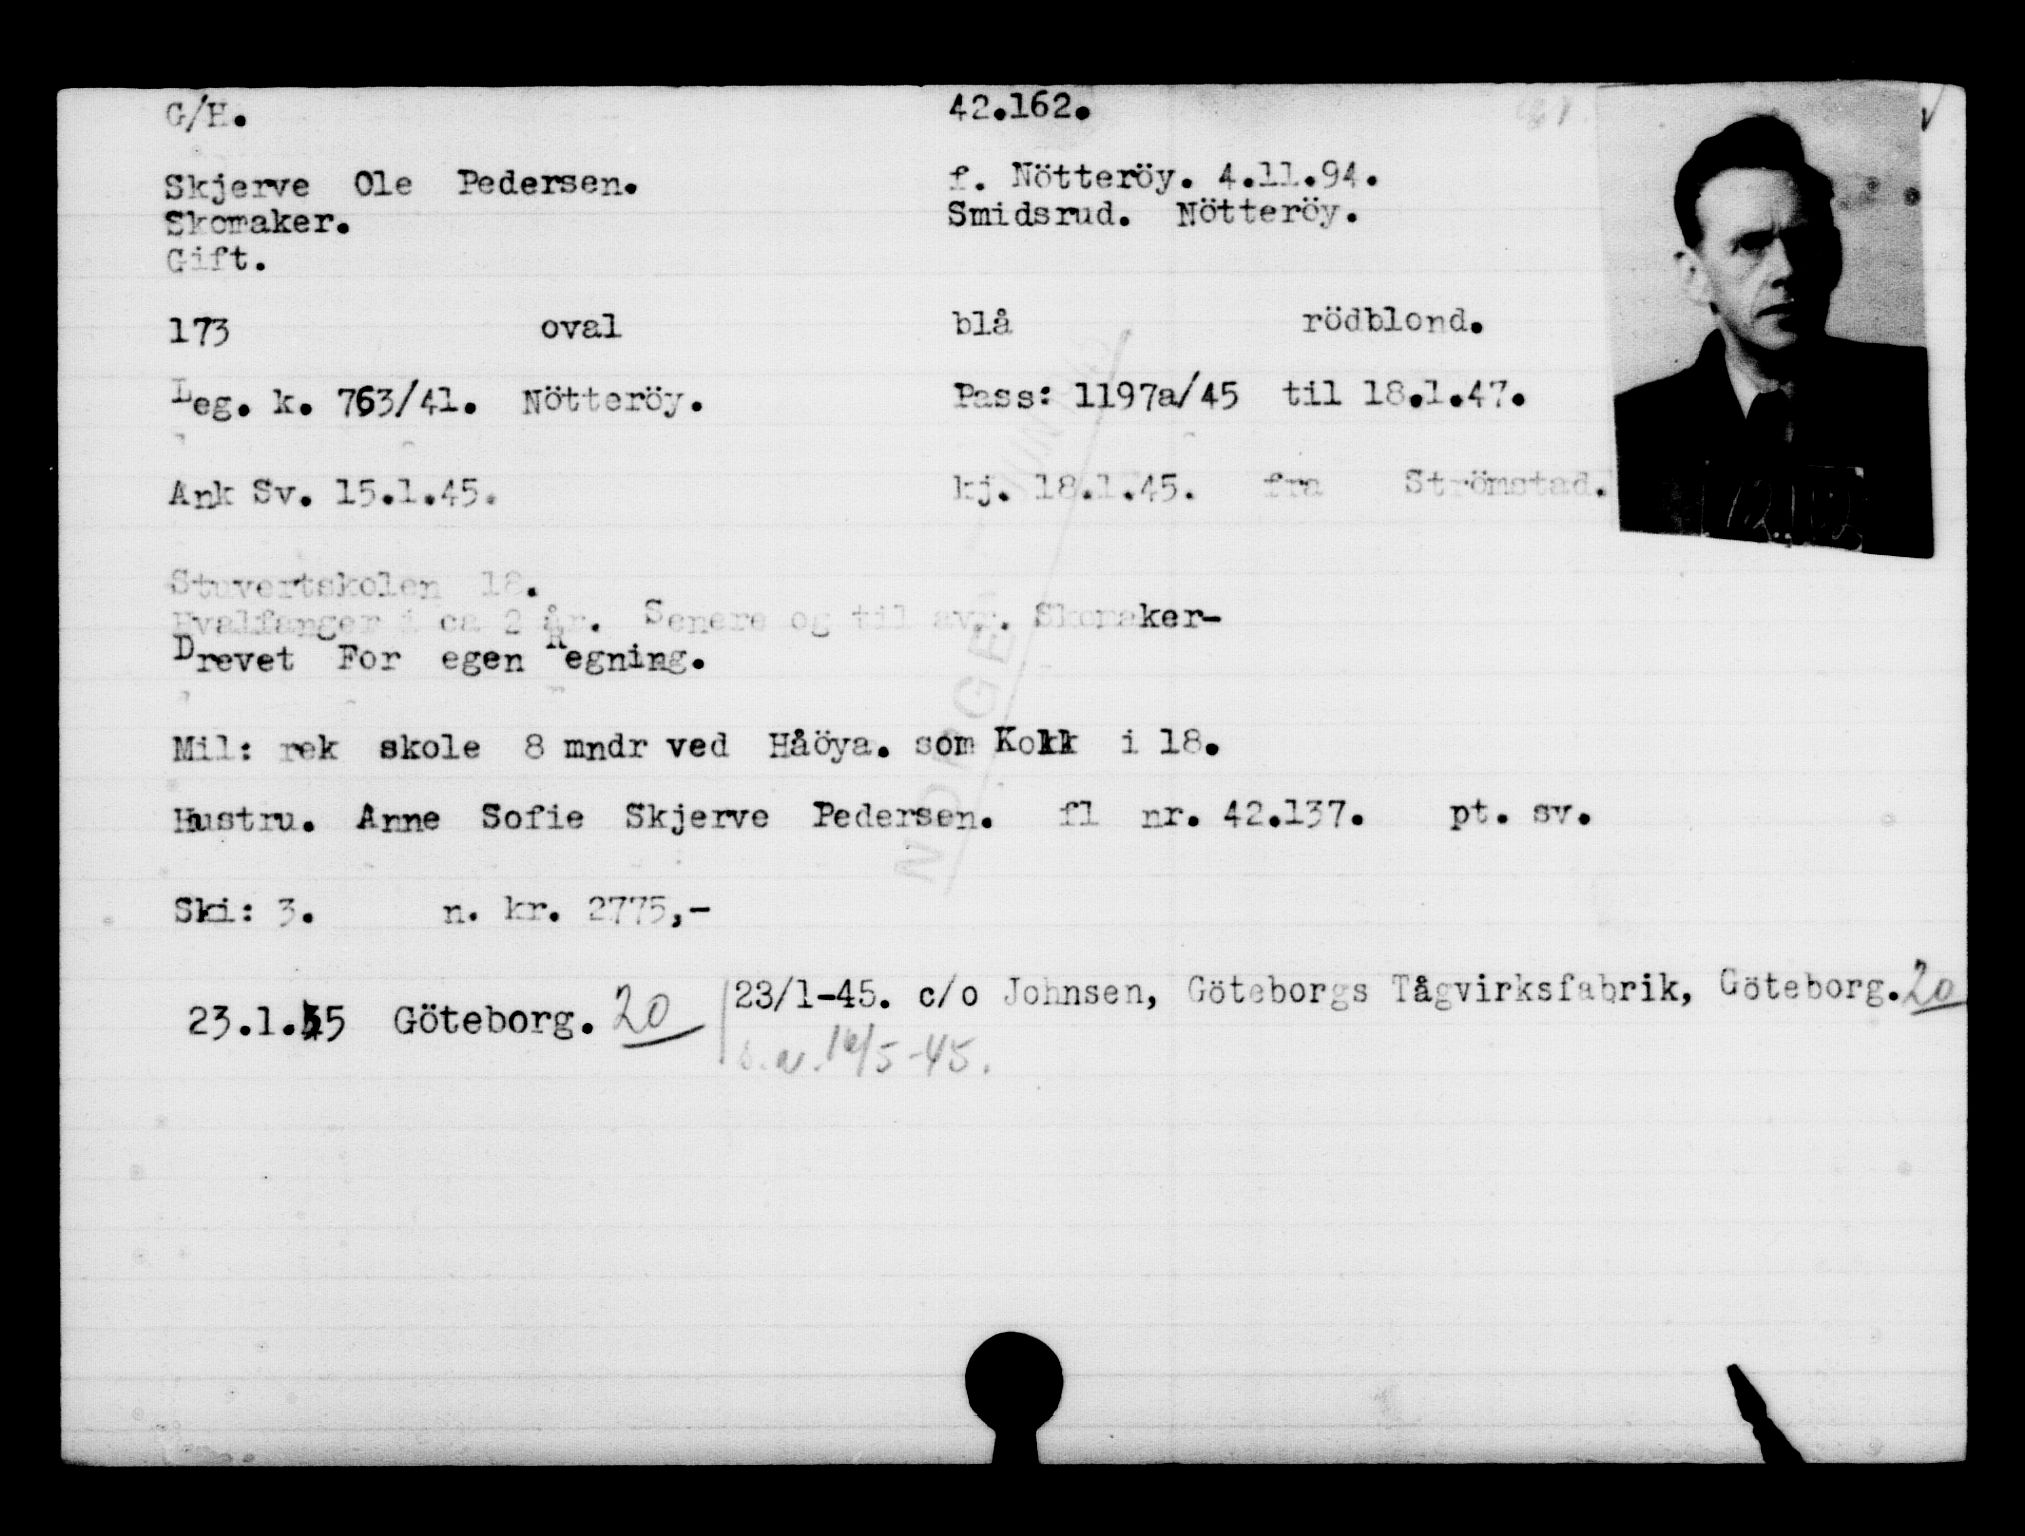 G/H. 42.162.
Skjerve Ole Pedersen. f. Nötteröy. 4.11.94.
Skomaker. Smidsrud. Nötteröy.
Gift.
173 oval blå rödblond.
Leg. k. 763/41. Nötteröy. Pass: 1197a/45 til 18.1.47.
Ank Sv. 15.1.45. kj. 18.1.45. fra Strömstad.
Stuvertskolen 18.
Hvalfanger i ca 2 år. Senere og til avr. Skomaker-
Drevet For egen Regning.
Mil: rek skole 8 mndr ved Håöya. som Kokk i 18.
Hustru. Anne Sofie Skjerve Pedersen. fl nr. 42.137. pt. sv.
Ski: 3. n. kr. 2775,-
23.1.45 Göteborg. 20 23/1-45. c/o Johnsen, Göteborgs Tågvirksfabrik, Göteborg. 20
16/5-45.
NORGE